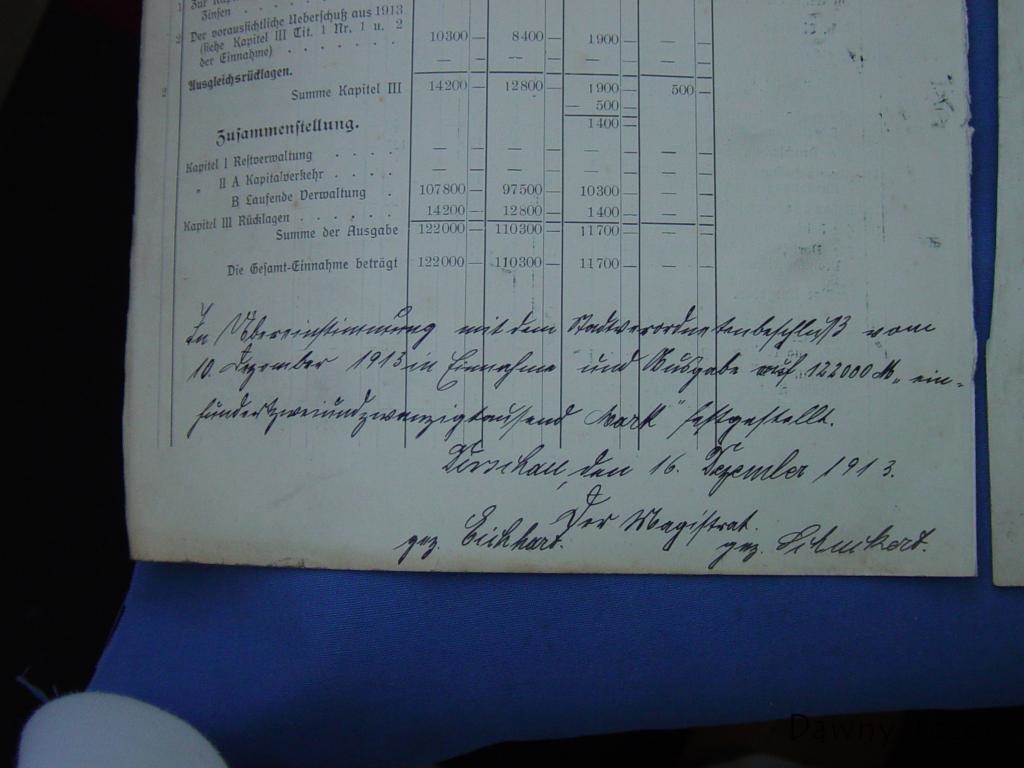 Zinsen . . . . . .
2 Der voraussichtliche Ueberschuß aus 1913
(siehe Kapitel III Tit. 1 Nr. 1 u. 2
der Einnahme) . . . . . . . 10300 — 8400 — 1900 — — —
Ausgleichsrücklagen. — — — —
Summe Kapitel III 14200 — 12800 — 1900 — 500 —
— 500 —
1400 —
Zusammenstellung.
Kapitel I Restverwaltung . . . . — — — —
„ II A Kapitalverkehr . . . . — — — —
B Laufende Verwaltung . 107800 — 97500 — 10300 — — —
Kapitel III Rücklagen . . . . . . 14200 — 12800 — 1400 — — —
Summe der Ausgabe 122000 — 110300 — 11700 — — —
Die Gesamt-Einnahme beträgt 122000 — 110300 — 11700 — — —
In Übereinstimmung mit dem Stadtverordnetenbeschluß vom
10. Dezember 1913 in Einnahme und Ausgabe auf 122000 M „ein-
hundertzweiundzwanzigtausend Mark" festgestellt.
Dirschau, den 16. Dezember 1913.
Der Magistrat.
gez. Eichhart. gez.
Dawny